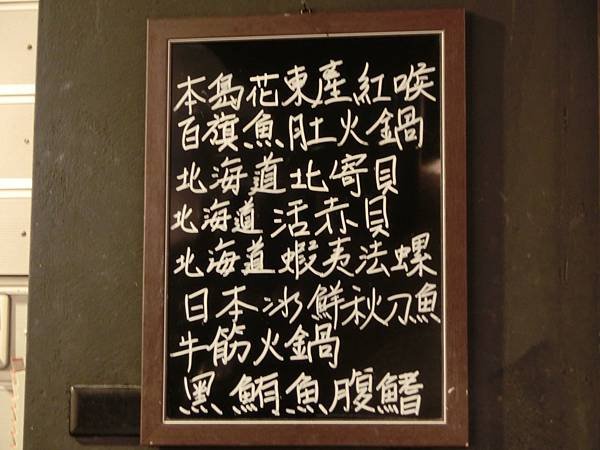 本島花東產紅喉
百旗魚肚火鍋
北海道北寄貝
北海道活赤貝
北海道蝦夷法螺
日本冰鮮秋刀魚
牛筋火鍋
黑鮪魚腹鰭